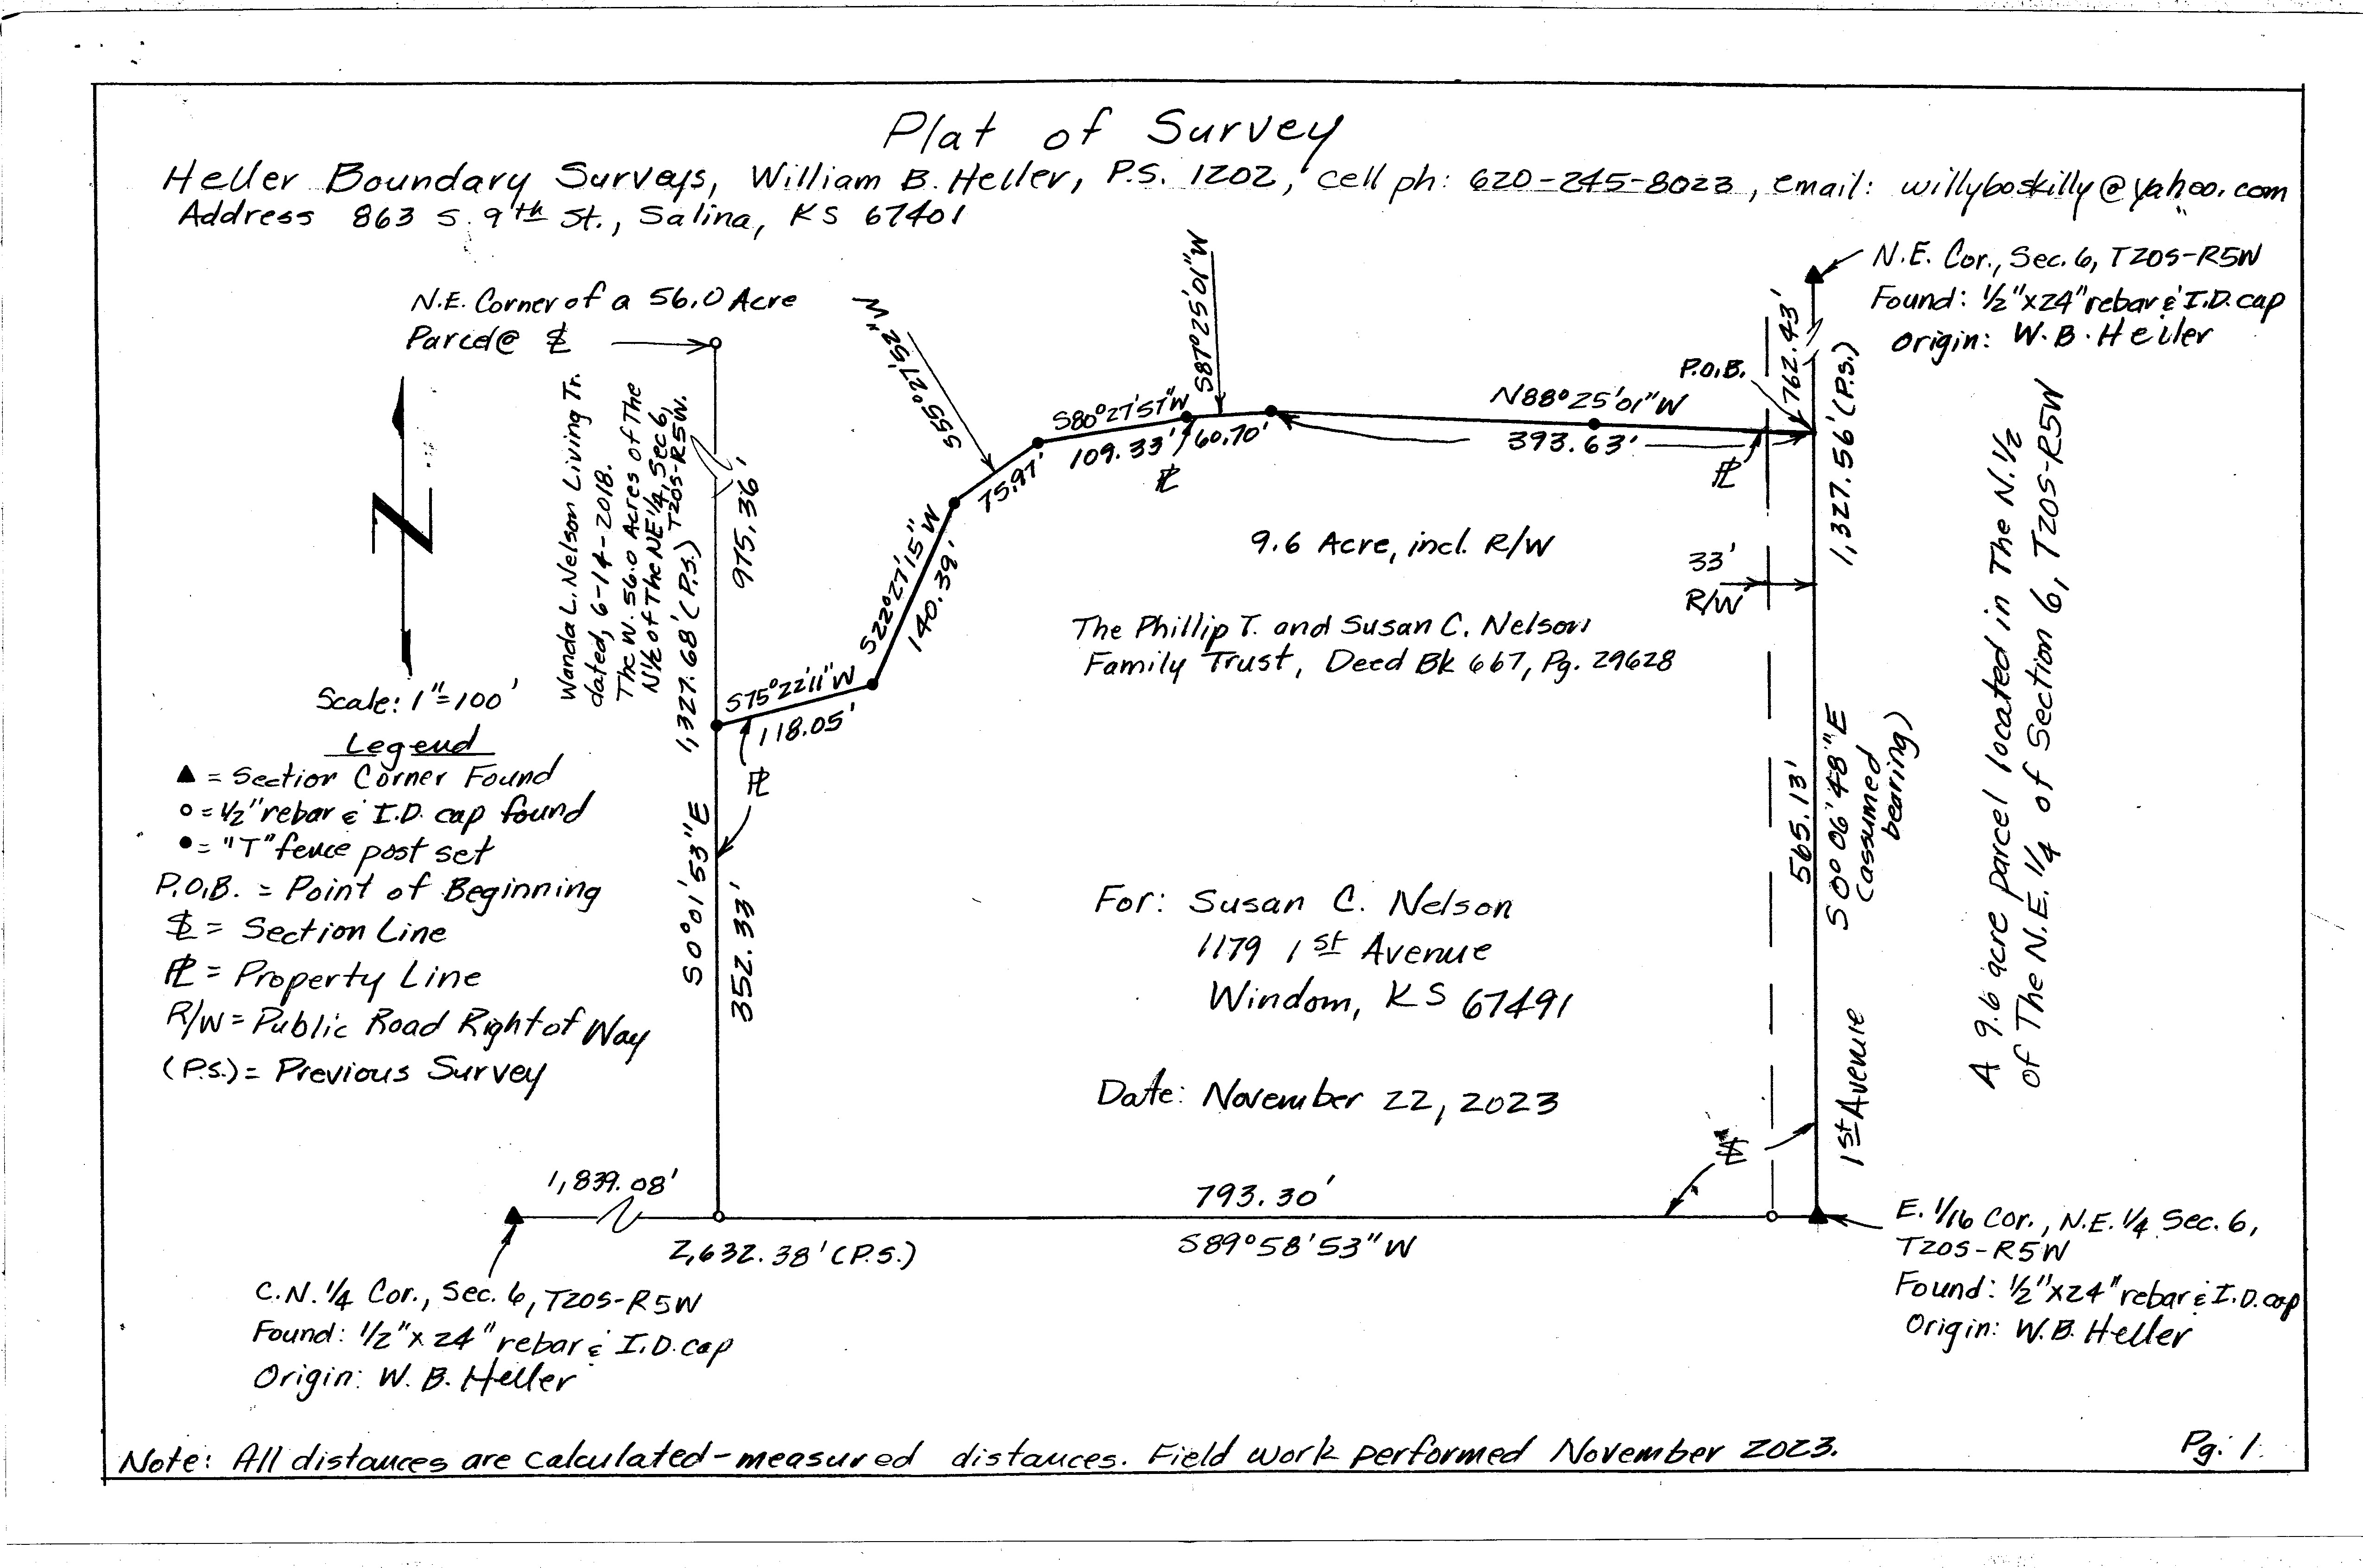 Plat of Survey
Heller Boundary Surveys, William B. Heller, P.S. 1202, cell ph: 620-245-8023, email: willyboskilly@yahoo.com
Address 863 S. 9th St., Salina, KS 67401
N.E. Cor., Sec. 6, T20S-R5W
Found: 1/2"x24" rebar & I.D. cap
Origin: W. B. Heller
N.E. Corner of a 56.0 Acre
Parcel @ SL
Wanda L. Nelson Living Tr.
dated, 6-14-2018.
The W. 56.0 Acres of The
N1/2 of The NE1/4, Sec 6,
T20S-R5W.
1,327.68' (P.S.)
975.36'
S55°27'52"W
75.97'
S80°27'57"W
109.33'
PL
S87°25'01"W
60.70'
N88°25'01"W
393.63'
PL
P.O.B.
762.43'
1,327.56' (P.S.)
S22°27'15"W
140.39'
S75°22'11"W
118.05'
PL
9.6 Acre, incl. R/W
33'
R/W
The Phillip T. and Susan C. Nelson
Family Trust, Deed Bk 667, Pg. 29628
N
Scale: 1"=100'
Legend
▲ = Section Corner Found
o = 1/2" rebar & I.D. cap found
● = "T" fence post set
P.O.B. = Point of Beginning
SL = Section Line
PL = Property Line
R/W = Public Road Right of Way
(P.S.) = Previous Survey
S0°01'53"E
352.33'
565.13'
S0°06'48"E
(assumed
bearing)
1st Avenue
A 9.6 acre parcel located in The N.1/2
of The N.E. 1/4 of Section 6, T20S-R5W
For: Susan C. Nelson
1179 1st Avenue
Windom, KS 67491
Date: November 22, 2023
SL
1,839.08'
793.30'
2,632.38' (P.S.)
S89°58'53"W
E. 1/16 Cor., N.E. 1/4 Sec. 6,
T20S-R5W
Found: 1/2"x24" rebar & I.D. cap
Origin: W.B. Heller
C.N. 1/4 Cor., Sec. 6, T20S-R5W
Found: 1/2"x24" rebar & I.D. cap
Origin: W. B. Heller
Note: All distances are calculated-measured distances. Field work performed November 2023.
Pg. 1